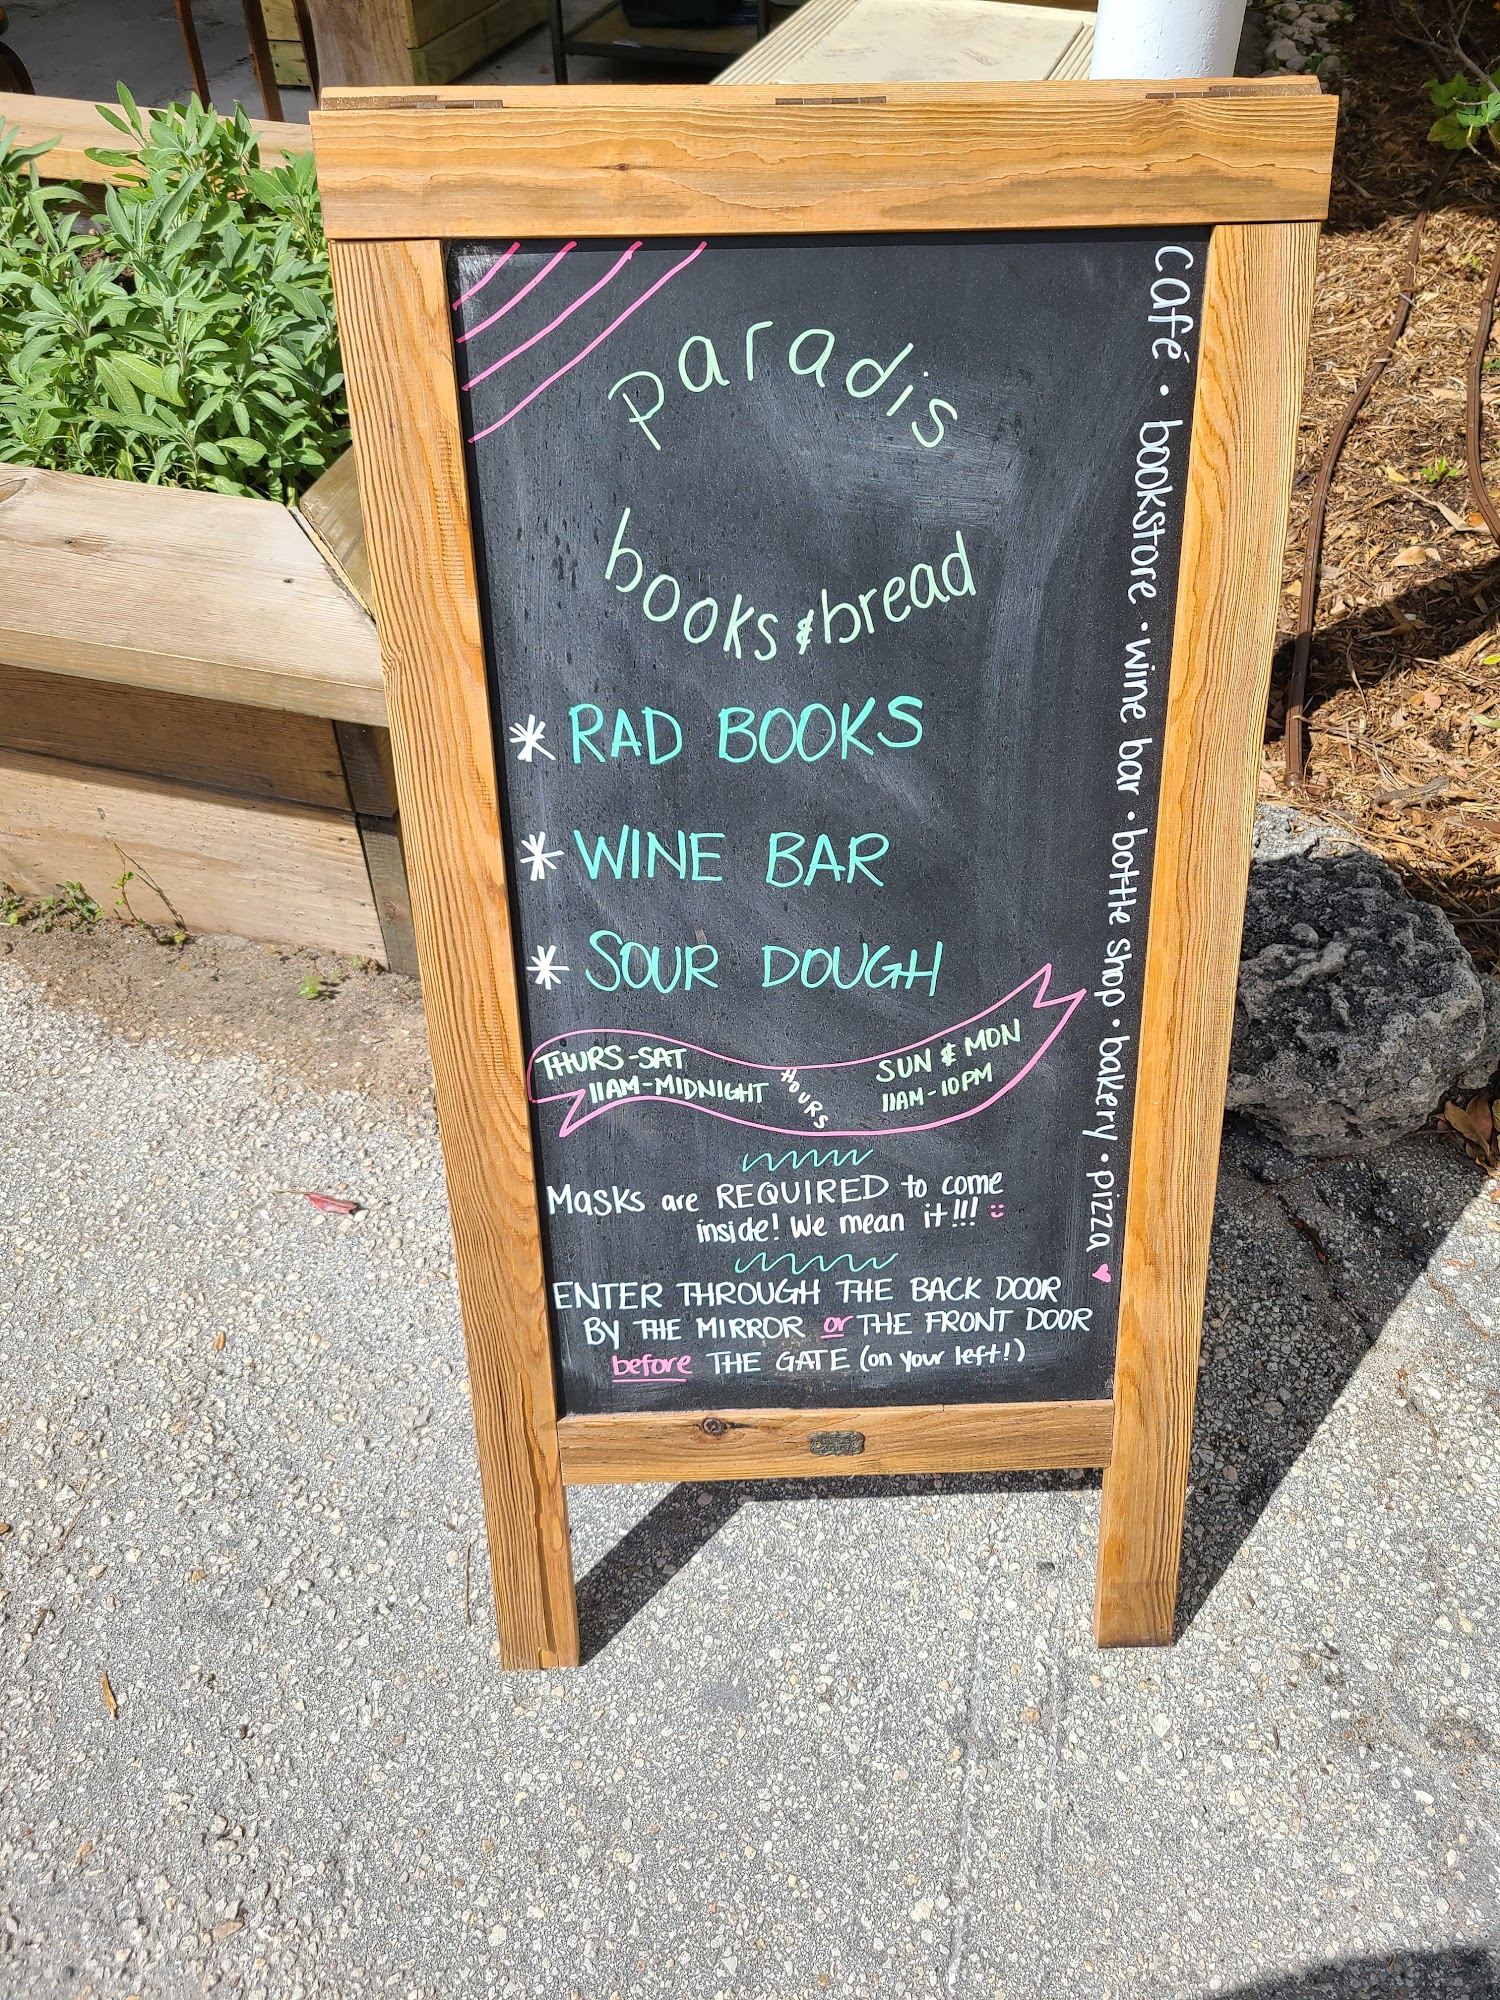 paradis
books & bread
* RAD BOOKS
* WINE BAR
* SOUR DOUGH
THURS-SAT
11AM-MIDNIGHT
HOURS
SUN & MON
11AM-10PM
Masks are REQUIRED to come
inside! We mean it!!!
ENTER THROUGH THE BACK DOOR
By THE MIRROR or THE FRONT DOOR
before THE GATE (on your left!)
café • bookstore • wine bar • bottle shop • bakery • pizza ♥